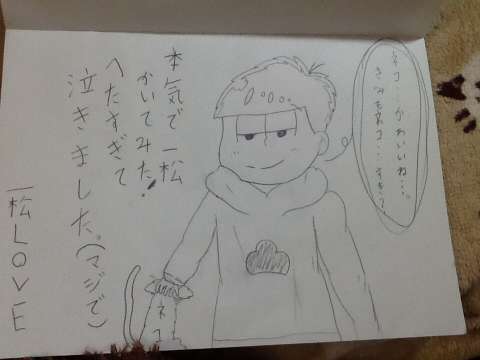 ネコ…かわいいね…。
きみもネコ…すき？
本気で一松
かいてみた！
へたすぎて
泣きました。(マジで)
一松LOVE
ネコ